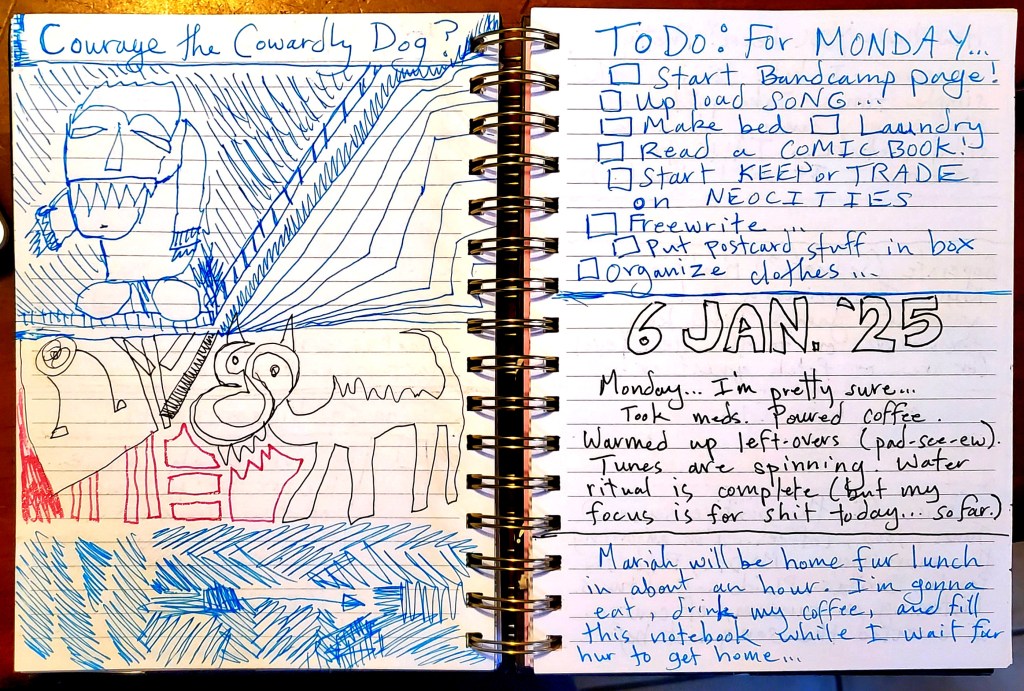 Courage the Cowardly Dog?
TODO: For MONDAY...
Start Bandcamp page!
Up load SONG...
Make bed Laundry
Read a COMIC BOOK!
Start KEEP or TRADE
on NEOCITIES
Freewrite...
Put postcard stuff in box
Organize clothes...
6 JAN. '25
Monday... I'm pretty sure...
Took meds. Poured coffee.
Warmed up left-overs (pad-see-ew).
Tunes are spinning. Water
ritual is complete (but my
focus is for shit today... so far.)
Mariah will be home fur lunch
in about an hour. I'm gonna
eat, drink my coffee, and fill
this notebook while I wait fur
hur to get home...